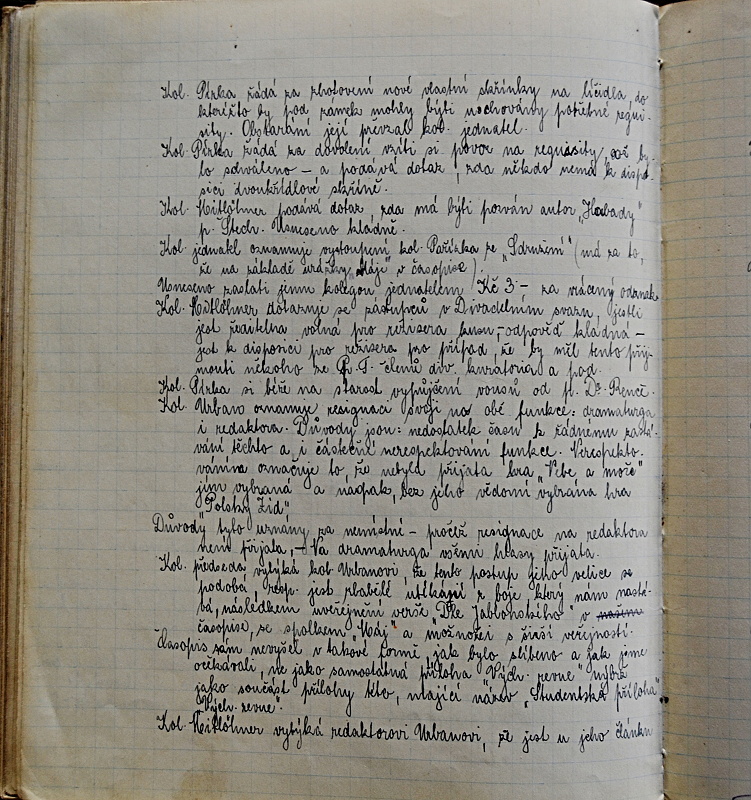 Kol. Pírka žádá za zhotovení nové vlastní skřínky na líčidla, do
kteréžto by pod zámek mohly býti uschovány potřebné requi-
sity. Obstarání její převzal kol. jednatel.
Kol. Pírka žádá za dovolení vzíti si povoz na requisity, což by-
lo schváleno – a podává dotaz, zda někdo nemá k dispo-
sici dvoukřídlové skříně.
Kol. Mitlöhner podává dotaz, zda má býti pozván autor „Habady"
p. Stech. Usneseno kladně.
Kol. jednatel oznamuje vystoupení kol. Pařízka ze „Sdružení" (má za to,
že na základě urážky „Máje" v časopise).
Usneseno zaslati jemu kolegou jednatelem Kč 3·– za vrácený odznak.
Kol. Mitlöhner dotazuje se zástupců v Divadelním svazu, jestli
jest ředitelna volná pro režisera kusu, – odpověď kladná –
jest k disposici pro režisera pro případ, že by měl tento přij-
mouti někoho ze členů div. kuratoria a pod.
Kol. Pírka si béře na starost vypůjčení vousů od p. Dr. Renče.
Kol. Urban oznamuje resignaci svoji na obě funkce: dramaturga
i redaktora. Důvody jsou: nedostatek času k řádnému zastá-
vání těchto a i částečné nerespektování funkce. Nerespekto-
váním označuje to, že nebyla přijata hra „Nebe a moře"
jím vybraná a naopak, bez jeho vědomí vybrána hra
„Polský Žid".
Důvody tyto uznány za nemístné – pročež resignace na redaktora
není přijata, – Na dramaturga všemi hlasy přijata.
Kol. předseda vytýká kol. Urbanovi, že tento postup jeho velice se
podobá resp. jest zbabělé utíkání z boje, který nám nastá-
vá, následkem uveřejnění verše „Dle Jablonského" v našem
časopise, se spolkem „Máj" a možno i s širší veřejností.
Časopis sám nevyšel v takové formě, jak bylo slíbeno a jak jsme
očekávali, ne jako samostatná příloha „Vých. revue" nýbrž
jako součást přílohy této, mající název „Studentská příloha"
Vých. revue.
Kol. Mitlöhner vytýká redaktorovi Urbanovi, že jest u jeho článku